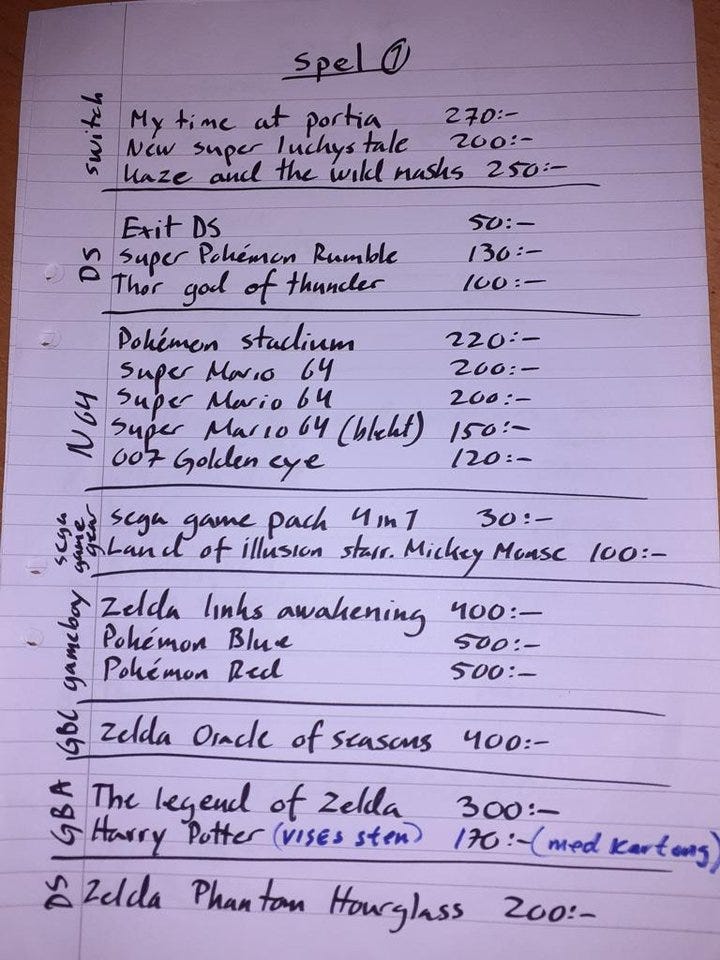 Spel ①
Switch
My time at portia 270:-
New super luchys tale 200:-
Kaze and the wild mashs 250:-
DS
Exit DS 50:-
Super Pokémon Rumble 130:-
Thor god of thunder 100:-
N64
Pokémon stadium 220:-
Super Mario 64 200:-
Super Mario 64 200:-
Super Mario 64 (blekt) 150:-
007 Golden eye 120:-
sega game gear
sega game pack 4 in 1 30:-
Land of illusion starr. Mickey Mouse 100:-
gameboy
Zelda links awakening 400:-
Pokémon Blue 500:-
Pokémon Red 500:-
GBC
Zelda Oracle of seasons 400:-
GBA
The legend of Zelda 300:-
Harry Potter (VISES sten) 170:- (med kartong)
DS
Zelda Phantom Hourglass 200:-